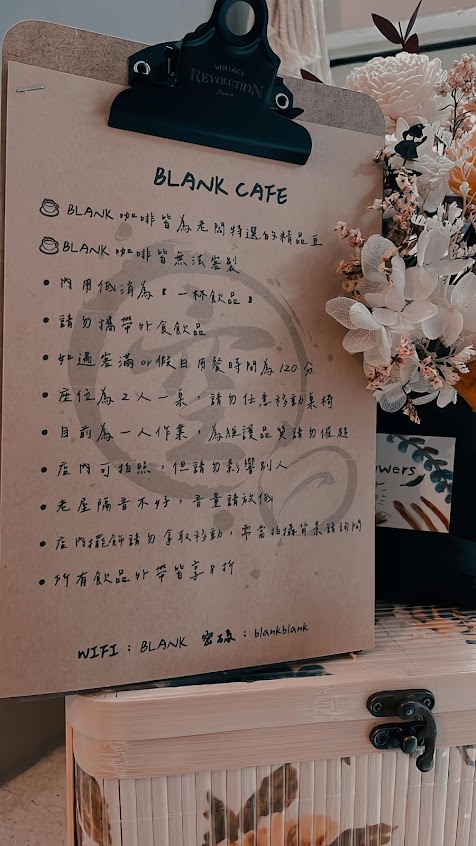 VINTAGE
REVOLUTION
BLANK CAFE
BLANK 咖啡皆為老闆特選的精品豆
BLANK 咖啡皆無法客製
• 內用低消為『一杯飲品』
• 請勿攜帶外食飲品
• 如遇客滿 or 假日用餐時間為 120 分
• 座位為 2 人一桌，請勿任意移動桌椅
• 目前為一人作業，為維護品質請勿催趕
• 店內可拍照，但請勿影響別人
• 老屋隔音不好，音量請放低
• 店內擺飾請勿拿取移動，需當拍攝背景請詢問
• 所有飲品外帶皆享 8 折
WIFI：BLANK 密碼：blankblank